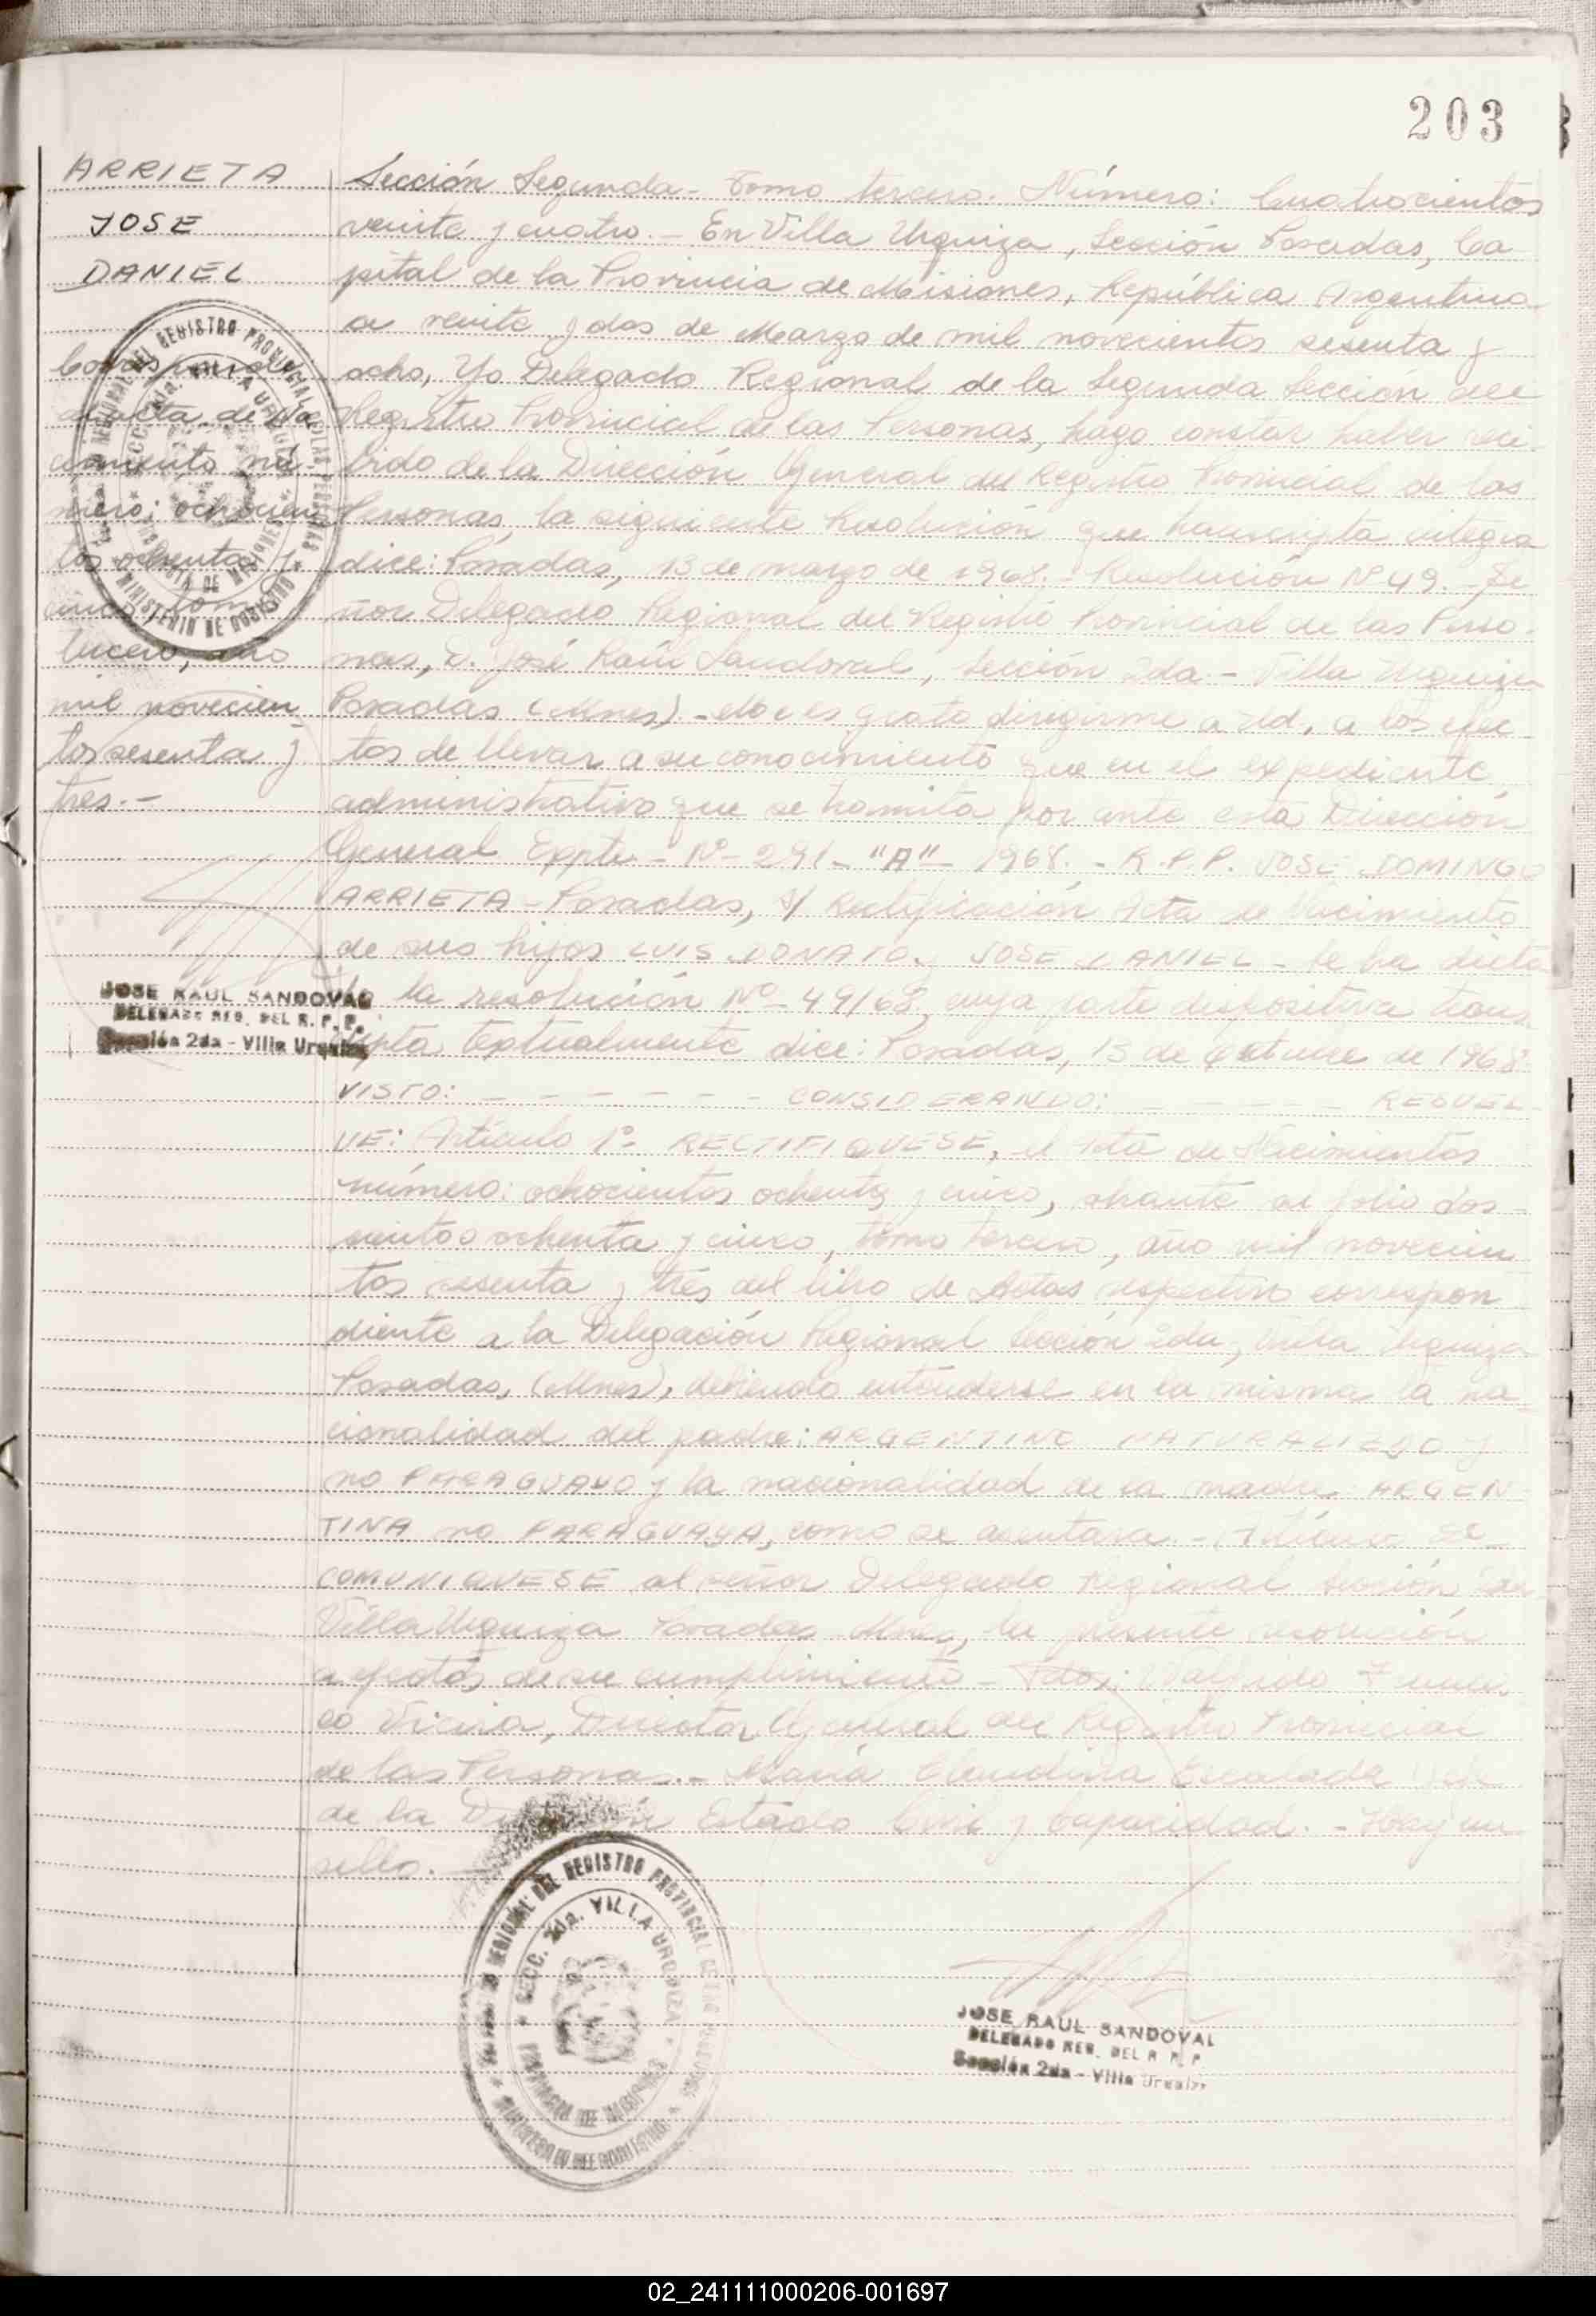 203
ARRIETA
JOSE
DANIEL
Corresponde
al acta de na
cimiento nú-
mero: ochocien
tos ochenta y
cinco, tomo
tercero, año
mil novecien
tos sesenta y
tres.-
JOSE RAUL SANDOVAL
DELEGADO REG. DEL R. P. P.
Sección 2da - Villa Urquiza
Sección Segunda - Tomo tercero. Número: Cuatrocientos
veinte y cuatro. - En Villa Urquiza, Sección Posadas, Ca
pital de la Provincia de Misiones, República Argentina
a veinte y dos de Marzo de mil novecientos sesenta y
ocho, Yo Delegado Regional de la Segunda Sección del
Registro Provincial de las Personas, hago constar haber reci
bido de la Dirección General del Registro Provincial de las
Personas, la siguiente Resolución que transcripta integra
dice: Posadas, 13 de marzo de 1968. - Resolución Nº 49. - Se
ñor Delegado Regional del Registro Provincial de las Perso-
nas, D. José Raúl Sandoval, Sección 2da - Villa Urquiza
Posadas (Mnes) - Me es grato dirigirme a Ud, a los efec
tos de llevar a su conocimiento que en el expediente
administrativo que se tramita por ante esta Dirección
General Expte - Nº - 291 - "A" - 1968. - R.P.P. JOSE DOMINGO
ARRIETA - Posadas, s/ Rectificación Acta de Nacimiento
de sus hijos LUIS DONATO y JOSE DANIEL - Se ha dicta
la resolución Nº - 49/68, cuya parte dispositiva trans
cripta textualmente dice: Posadas, 13 de de 1968.
VISTO: - - - - - - CONSIDERANDO: - - - - - RESUEL-
VE: Artículo 1º - RECTIFIQUESE, el Acta de Nacimientos
número: ochocientos ochenta y cinco, obrante al folio dos-
cientos ochenta y cinco, tomo tercero, año mil novecien
tos sesenta y tres del libro de Actas respectivo correspon
diente a la Delegación Regional Sección 2da, Villa Urquiza
Posadas, (Mnes), debiendo entenderse en la misma la na
cionalidad del padre: ARGENTINO NATURALIZDO y
no PARAGUAYO y la nacionalidad de la madre ARGEN
TINA no PARAGUAYA, como se asentara. - Artículo 2º
COMUNIQUESE al señor Delegado Regional Sección 2da
Villa Urquiza Posadas Mnes, la presente resolución
a efectos de su cumplimiento - Fdos: Walfrido
Vieira, Director General del Registro Provincial
de las Personas. - María Claudina Escalada Jefe
de la División Estado Civil y Capacidad. - Hay un
sello.
DEL REGISTRO PROVINCIAL DE LAS PERSONAS
SECC. 2da. VILLA URQUIZA
PROVINCIA DE MISIONES
MINISTERIO DE GOBIERNO
JOSE RAUL SANDOVAL
DELEGADO REG. DEL R. P. P.
Sección 2da - Villa Urquiza
02_241111000206-001697